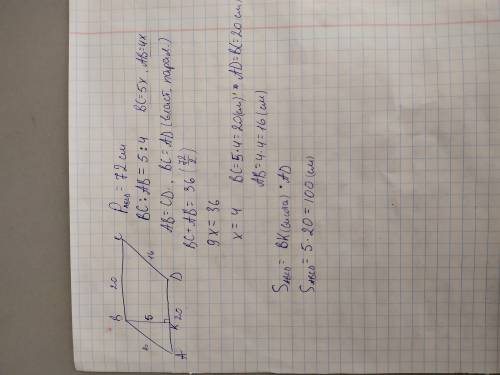 P ABCD = 72 см
BC : AB = 5 : 4 BC = 5x, AB = 4x
AB = CD, BC = AD (власт. парал.)
BC + AB = 36 (72/2)
9x = 36
x = 4 BC = 5·4 = 20 (см) AD = BC = 20 (см)
AB = 4·4 = 16 (см)
S ABCD = BK (висота) · AD
S ABCD = 5 · 20 = 100 (см)
B 20 C
5 16
A K 20 D